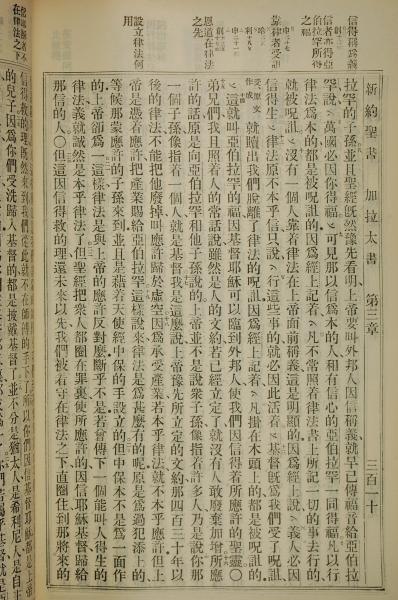 新約聖書 加拉太書 第三章 三百一十
信得稱爲義
信者亦得亞
伯拉罕所得
之福
靠律者受
咒
恩道在律法
之先
設立律法何
用
在律法之下
拉罕的子孫並且聖經旣然豫先看明上帝要叫外邦人因信稱義就早已傳福音給亞伯拉
罕說萬國必因你得福可見那以信爲本的人和有信心的亞伯拉罕一同得福凡以行
律法爲本的都是被咒詛的因爲經上記着凡不常照着律法書上所記一切的事去行的
就被咒詛沒有一個人靠着律法在上帝面前稱義這是明顯的因爲經上說義人必因
信得生律法原不本乎信只說行這些事的就必因此活着基督旣爲我們受了咒詛
受原文作成 就贖出我們脫離了律法的咒詛因爲經上記着凡掛在木頭上的都是被咒詛的
這就叫亞伯拉罕的福因基督耶穌可以臨到外邦人使我們因信得着所應許的聖靈〇
弟兄們我且照着人的常話說雖然是人的文約若已經立定了就沒有人敢廢棄加增所應
許的話原是向亞伯拉罕和他子孫說的上帝並不是說衆子孫像指着許多人乃是說你那
一個子孫像指着一個人就是基督我是這麼說上帝豫先所立定的文約那四百三十年以
後的律法不能把他廢掉叫應許歸於虛空因爲承受產業若本乎律法就不本乎應許但上
帝是憑着應許把產業賜給亞伯拉罕這樣說來律法是爲甚麼有的呢原是爲過犯添上的
等候那蒙應許的子孫來到並且是藉着天使經中保的手設立的但中保本不是爲一面作
的上帝卻爲一這樣律法是與上帝的應許反對麼斷乎不是若曾傳下一個能叫人得生的
律法義就誠然是本乎律法了但聖經把衆人都圈在罪裏使所應許的因信耶穌基督歸給
那信的人〇但這因信得救的理還未來以先我們被看守在律法之下直圈住到那將來的
信得救的理旣然來到我們從此就不在師傅的手下了所以你們因信基督耶穌都是上帝
的兒子因爲你們受洗歸入基督的都是披戴基督了並不分是猶太人是希利尼人是自主